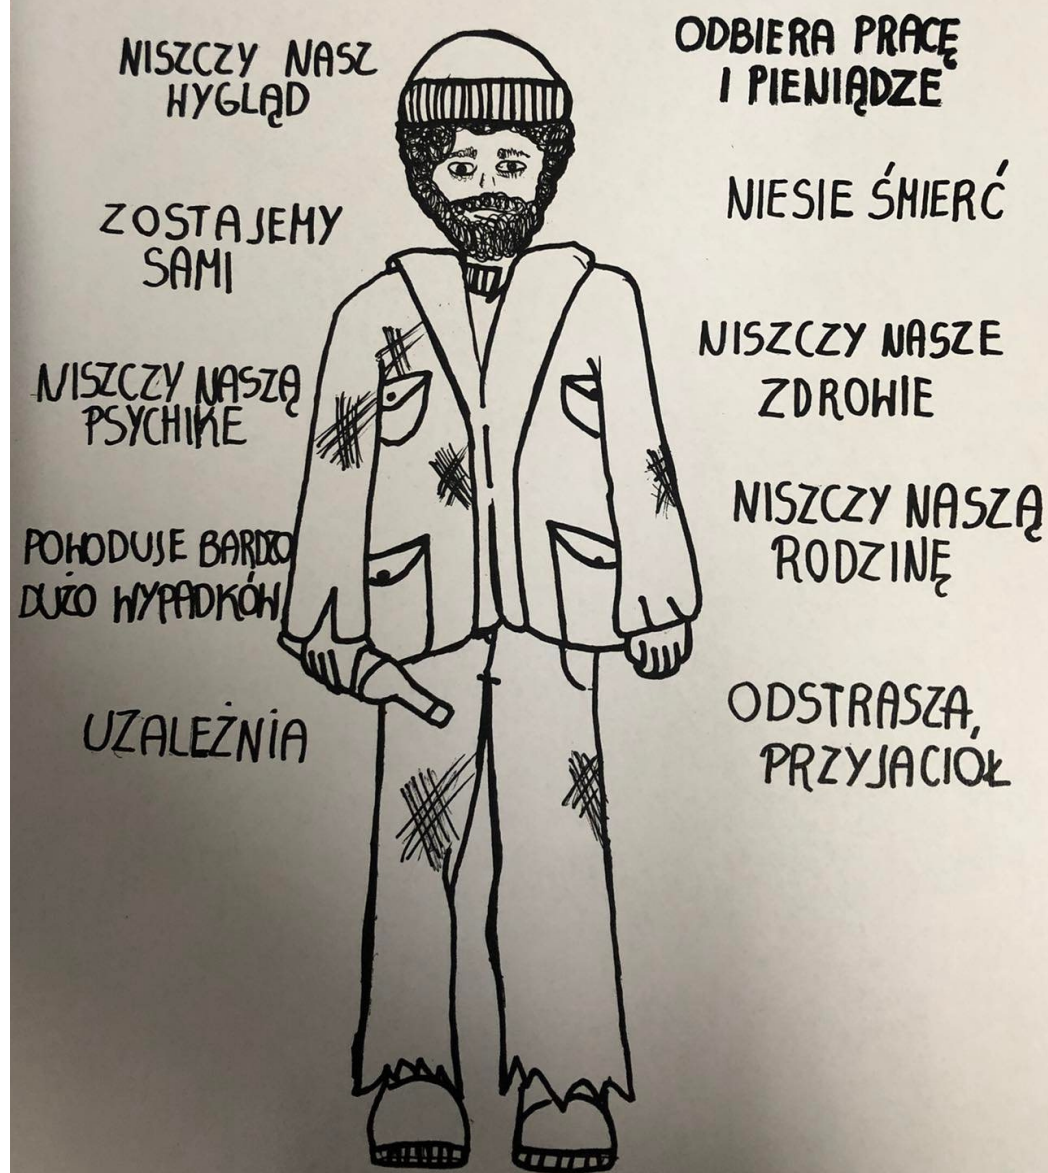 NISZCZY NASZ
WYGLĄD
ZOSTAJEMY
SAMI
NISZCZY NASZĄ
PSYCHIKE
POWODUJE BARDZO
DUŻO WYPADKÓW
UZALEŻNIA
ODBIERA PRACĘ
I PIENIĄDZE
NIESIE ŚMIERĆ
NISZCZY NASZE
ZDROWIE
NISZCZY NASZĄ
RODZINĘ
ODSTRASZA,
PRZYJACIÓŁ